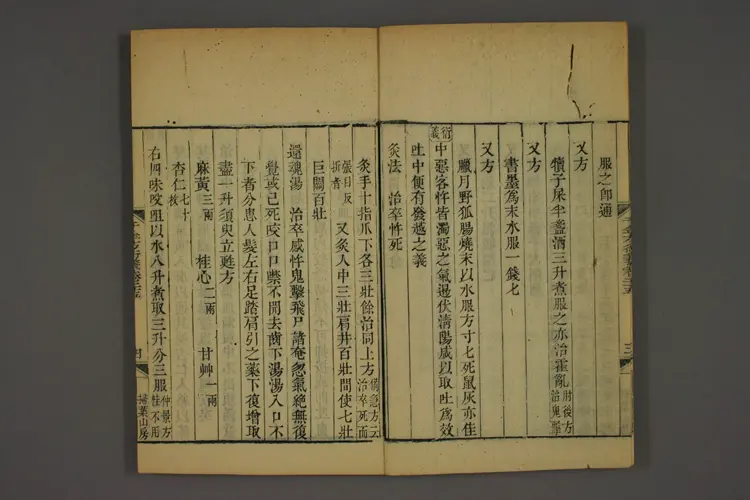 服之即通
又方
犢子屎半盞酒三升煮服之亦治霍亂肘後方治鬼擊
又方
書墨爲末水服一錢匕
又方
臘月野狐腸燒末以水服方寸匕死鼠灰亦佳
衍義
中惡客忤皆濁惡之氣遏伏清陽咸以取吐爲效
吐中便有發越之義
灸法　治卒忤死
灸手十指爪下各三壯餘治同上方備急方云治卒死而
張目反折者　又灸人中三壯肩井百壯間使七壯
巨闕百壯
還魂湯　治卒感忤鬼擊飛尸諸奄忽氣絕無復
覺或已死咬口口噤不開去齒下湯湯入口不
下者分患人髮左右足踏肩引之藥下復增取
盡一升須臾立甦方
麻黃三兩　桂心二兩　甘艸一兩
杏仁七十枚
右四味㕮咀以水八升煮取三升分三服仲景方桂不用
三
四
掃葉山房